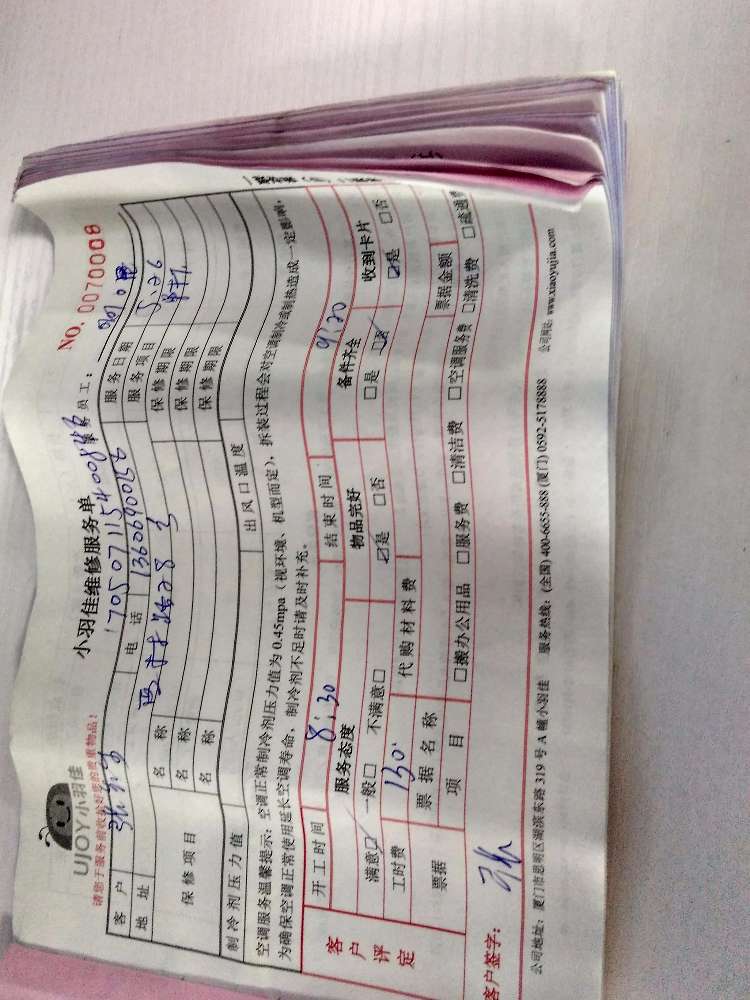 UJOY小羽佳
小羽佳维修服务单
NO. 0070008
请您于服务前收拾好您的贵重物品！
170507115400843
员工：
客户
电话 13606900253
服务日期
地址
服务项目
保修项目
名称
保修期限
名称
保修期限
名称
保修期限
制冷剂压力值
出风口温度
空调服务温馨提示：空调正常制冷剂压力值为 0.45mpa（视环境、机型而定），拆装过程会对空调制冷或制热造成一定影响，
为确保空调正常使用延长空调寿命，制冷剂不足时请及时补充。
客户评定
开工时间 8:30 结束时间 9:20
服务态度 物品完好 备件齐全 收到卡片
满意☑ 一般□ 不满意□ ☑是 □否 □是 ☑否 ☑是 □否
工时费 130. 代购材料费
票据 票据名称 票据金额
项目 □搬办公用品 □服务费 □清洁费 □空调服务费 □清洗费 □疏通费
客户签字： 张
公司地址：厦门市思明区湖滨东路 319 号 A 幢小羽佳 服务热线：(全国) 400-6655-888 (厦门) 0592-5178888 公司网站：www.xiaoyujia.com